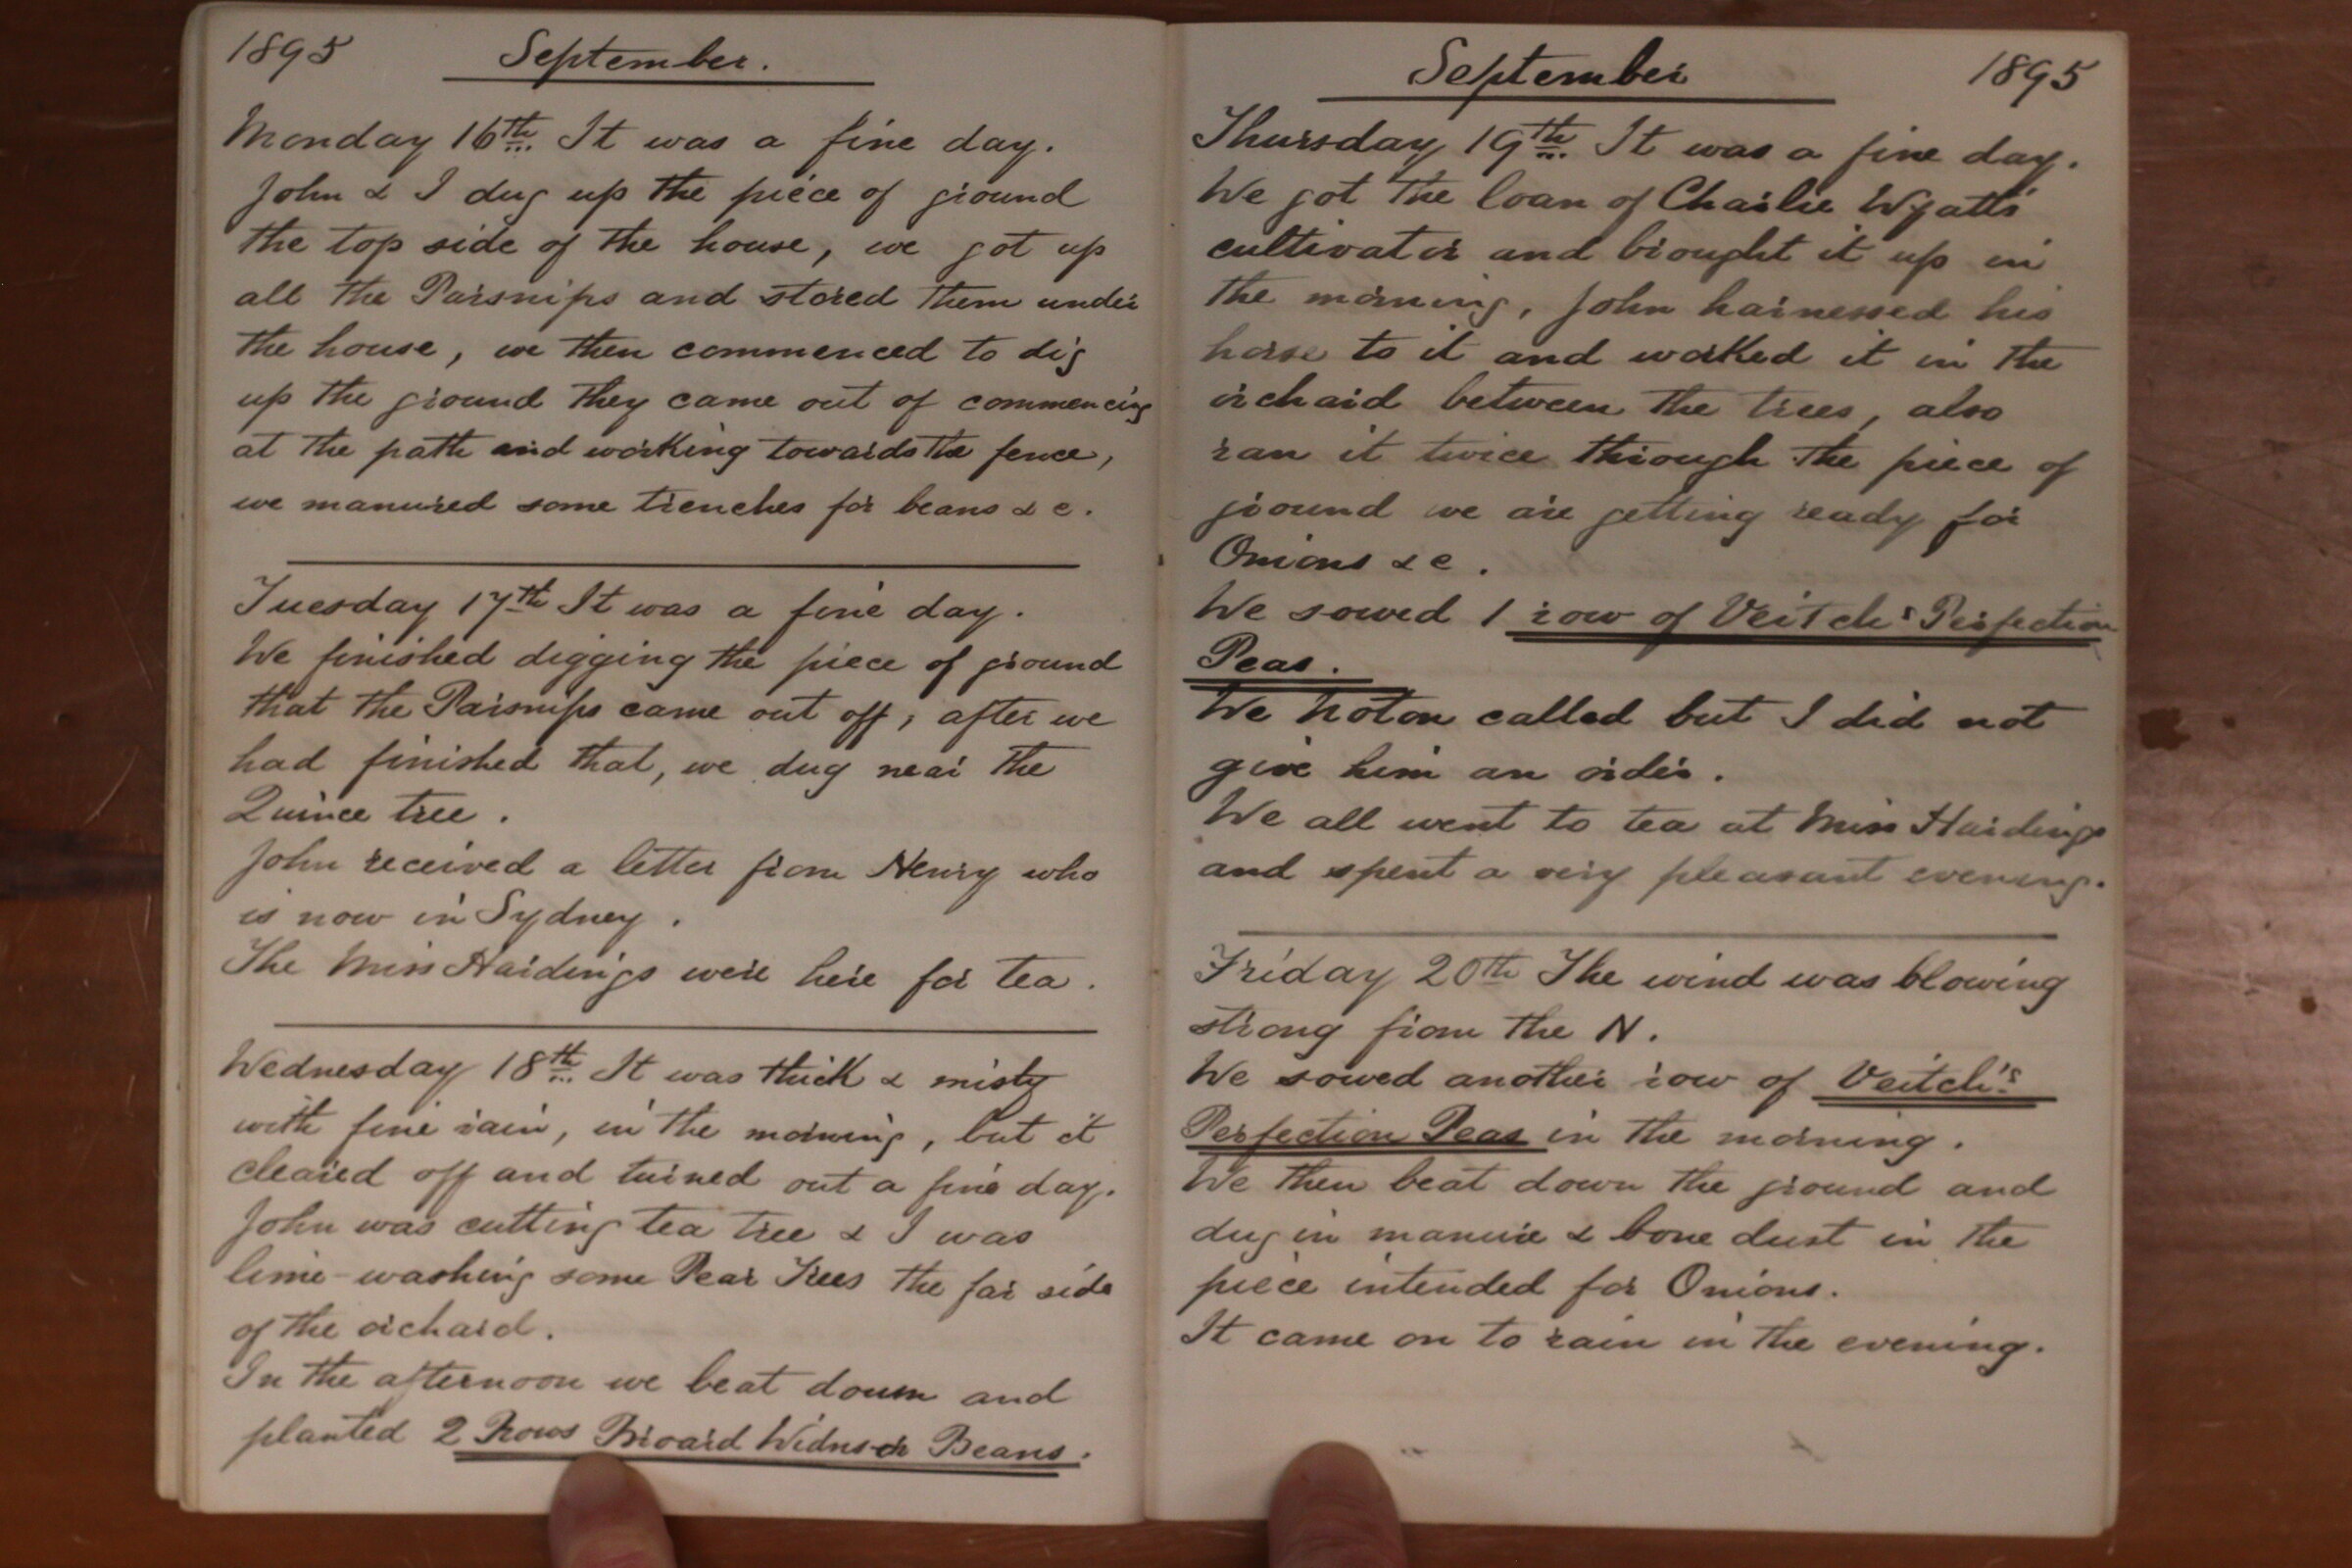 1895 September.
Monday 16th It was a fine day.
John & I dug up the piece of ground
the top side of the house, we got up
all the Parsnips and stored them under
the house, we then commenced to dig
up the ground they came out of commencing
at the path and working towards the fence,
we manured some trenches for beans & c.
Tuesday 17th It was a fine day.
We finished digging the piece of ground
that the Parsnips came out off, after we
had finished that, we dug near the
Quince tree.
John received a letter from Henry who
is now in Sydney.
The Miss Hardings were here for tea.
Wednesday 18th It was thick & misty
with fine rain, in the morning, but it
cleared off and turned out a fine day.
John was cutting tea tree & I was
lime-washing some Pear Trees the far side
of the orchard.
In the afternoon we beat down and
planted 2 Rows Broard Widnsor Beans.
September 1895
Thursday 19th It was a fine day.
We got the loan of Charlie Wyatts
cultivator and brought it up in
the morning, John harnessed his
horse to it and worked it in the
orchard between the trees, also
ran it twice through the piece of
ground we are getting ready for
Onions & c.
We sowed 1 row of Veitch's Perfection
Peas.
We called but I did not
give him an order.
We all went to tea at Miss Hardings
and spent a very pleasant evening.
Friday 20th The wind was blowing
strong from the N.
We sowed another row of Veitch's
Perfection Peas in the morning.
We then beat down the ground and
dug in manure & bone dust in the
piece intended for Onions.
It came on to rain in the evening.